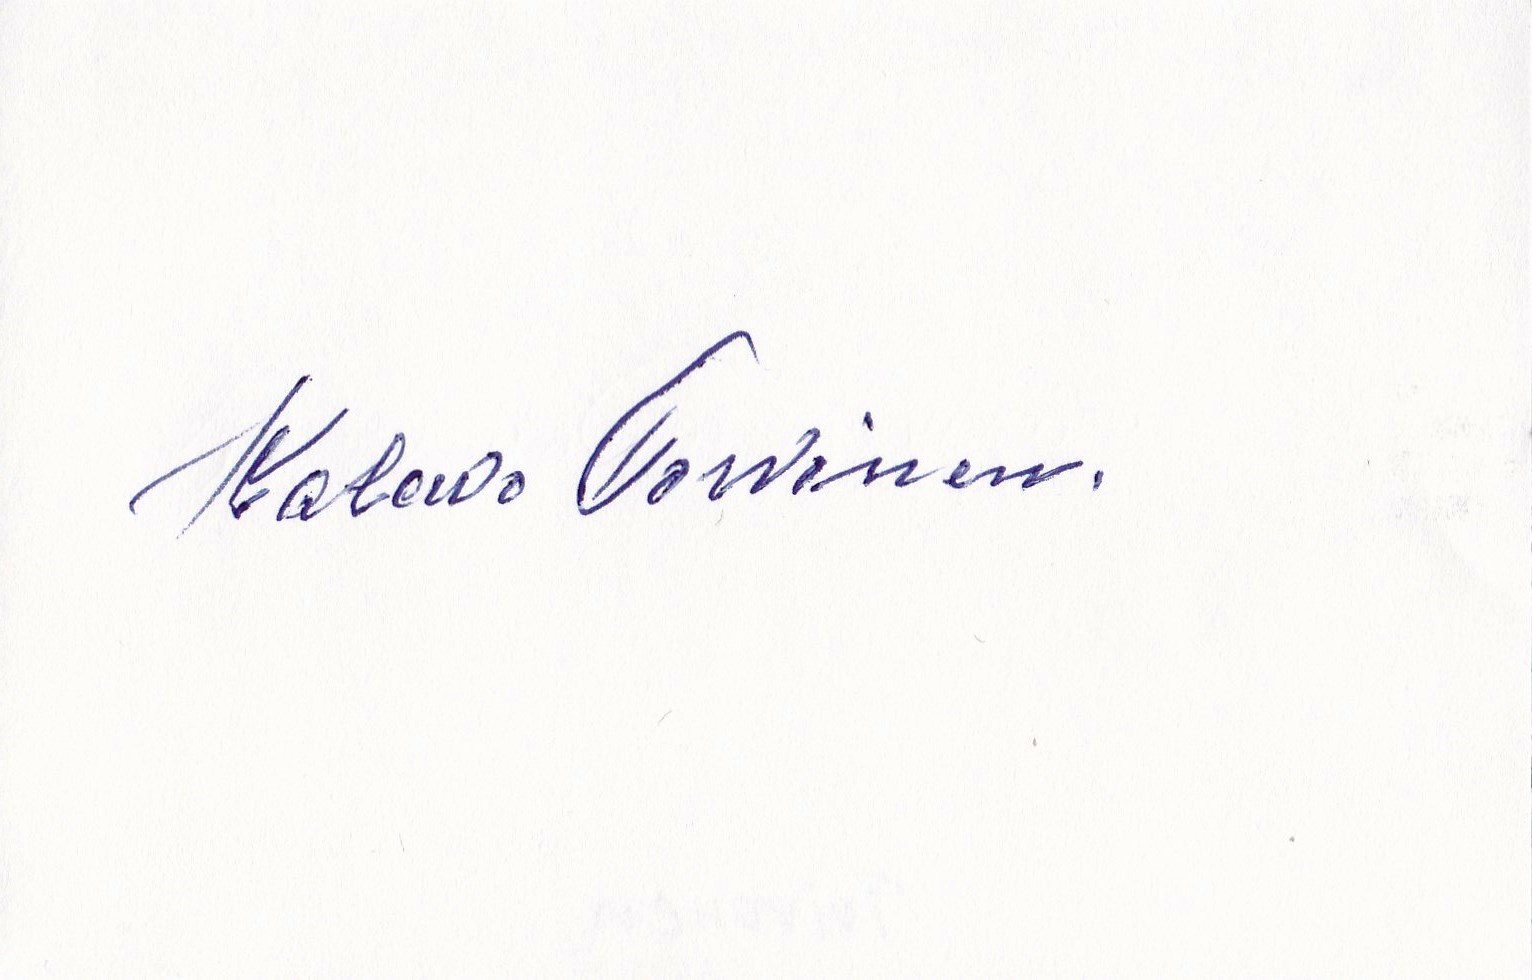 Kalevo Torvinen.